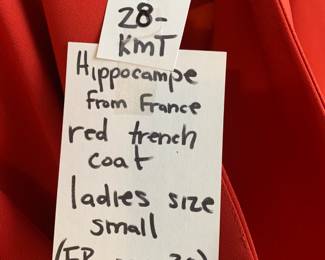 28-
KmT
Hippocampe
from France
red trench
coat
ladies size
small